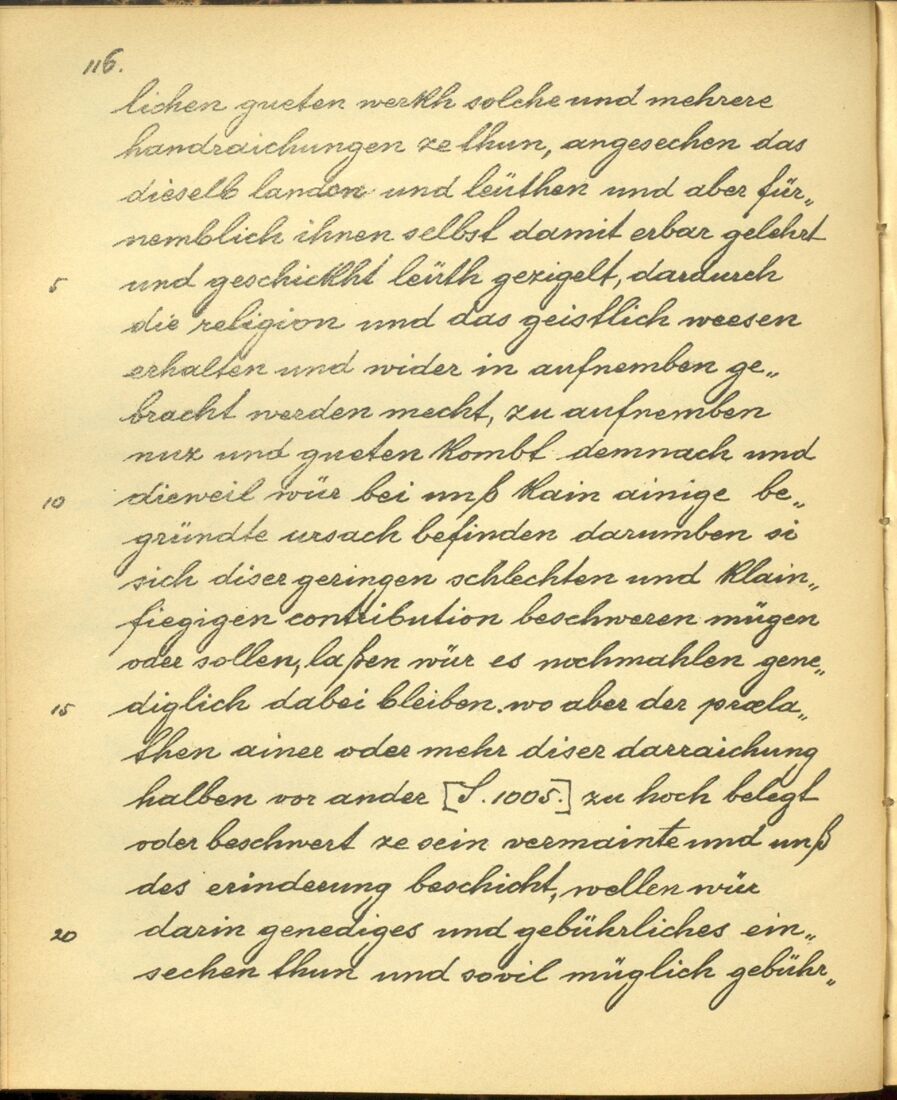 116.
lichen gueten werkh solche und mehrere
handraichungen ze thun, angesechen das
dieselb landen und leüthen und aber für„
nemblich ihnen selbst damit erbar gelehrt
5 und geschickht leüth gezigelt, dardurch
die religion und das geistlich weesen
erhalten und wider in aufnemben ge„
bracht werden mecht, zu aufnemben
nuz und gueten kombt demnach und
10 dieweil wür bei unß kain ainige be„
gründte ursach befinden darumben si
sich diser geringen schlechten und klain„
fiegigen contribution beschweren mügen
oder sollen, laßen wür es nochmahlen gene„
15 diglich dabei bleiben. wo aber der præla„
then ainer oder mehr diser darraichung
halben vor ander [S. 1005.] zu hoch belegt
oder beschwert ze sein vermainte und unß
des erinderung beschicht, wellen wür
20 darin genediges und gebührliches ein„
sechen thun und sovil müglich gebühr„